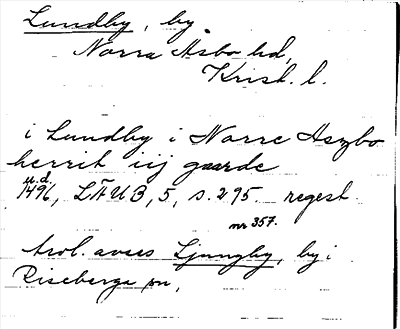 Lundby, by
Norra Åsbo hd,
Krist. l.
i Lundby i Norre Aszbo
herrit iij gaarde
u.d.
1496, LÄUB, 5, s. 295. regest
nr 357.
trol. avses Ljungby, by i
Riseberga sn,